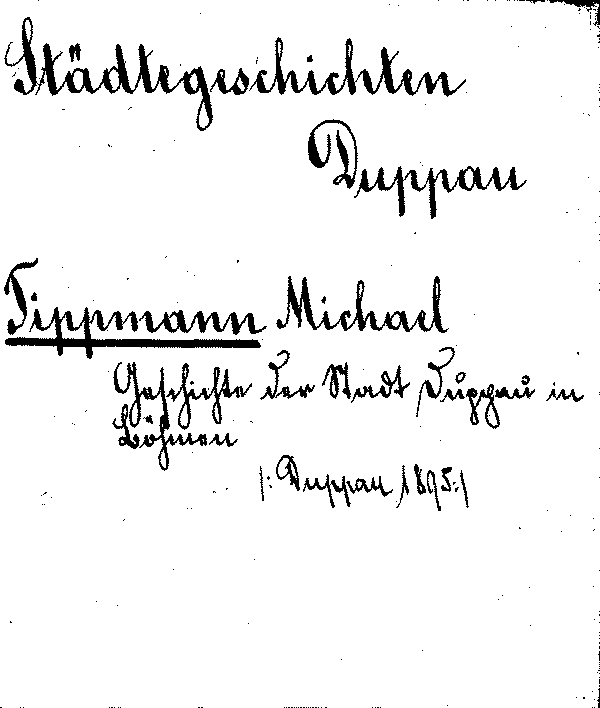 Städtegeschichten
Duppau
Tippmann Michael
Geschichte der Stadt Duppau in
Böhmen
/: Duppau 1895:/